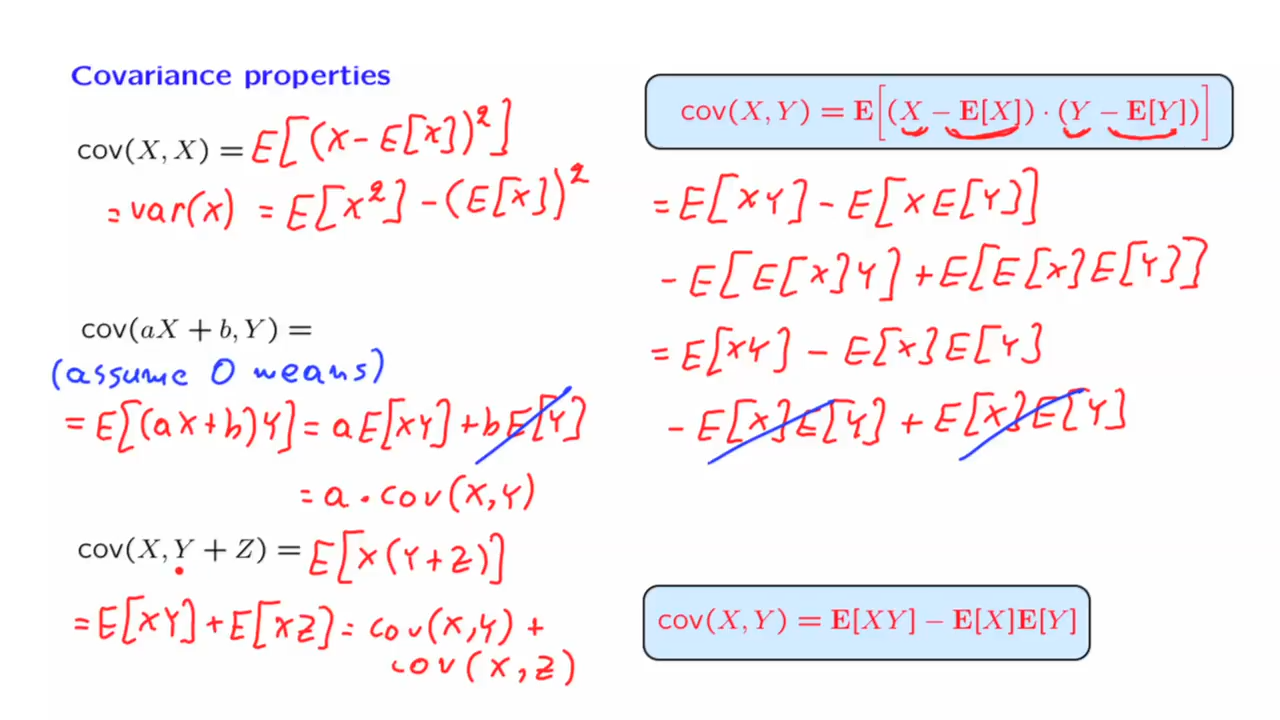 Covariance properties
cov(X, X) = E[(X - E[X])²]
= var(X) = E[X²] - (E[X])²
cov(aX + b, Y) =
(assume 0 means)
= E[(aX+b)Y] = aE[XY] + bE[Y]
= a · cov(X,Y)
cov(X, Y + Z) = E[X(Y+Z)]
= E[XY] + E[XZ] = cov(X,Y) +
cov(X,Z)
cov(X, Y) = E[(X − E[X]) · (Y − E[Y])]
= E[XY] - E[XE[Y]]
- E[E[X]Y] + E[E[X]E[Y]]
= E[XY] - E[X]E[Y]
- E[X]E[Y] + E[X]E[Y]
cov(X, Y) = E[XY] − E[X]E[Y]